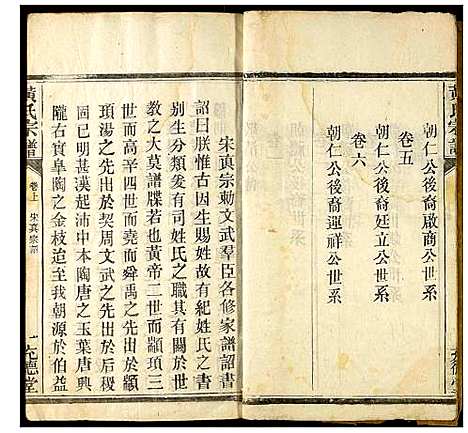 黃氏宗譜
朝仁公後裔啟商公世系
卷五
朝仁公後裔廷立公世系
卷六
朝仁公後裔運祥公世系
宋真宗勅文武羣臣各修家譜詔書
詔曰朕惟古因生賜姓故有紀姓氏之書
別生分類爰有司姓氏之職其有關於世
教之大莫譜牒若也黃帝二世而顓項三
世而高辛四世而堯而舜禹之先出於顓
項湯之先出於契周文武之先出於后稷
固已明甚漢起沛中本陶唐之玉葉唐興
隴右實皐陶之金枝迨至我朝源於伯益
黃氏宗譜
卷上
宋真宗詔
一
允德堂